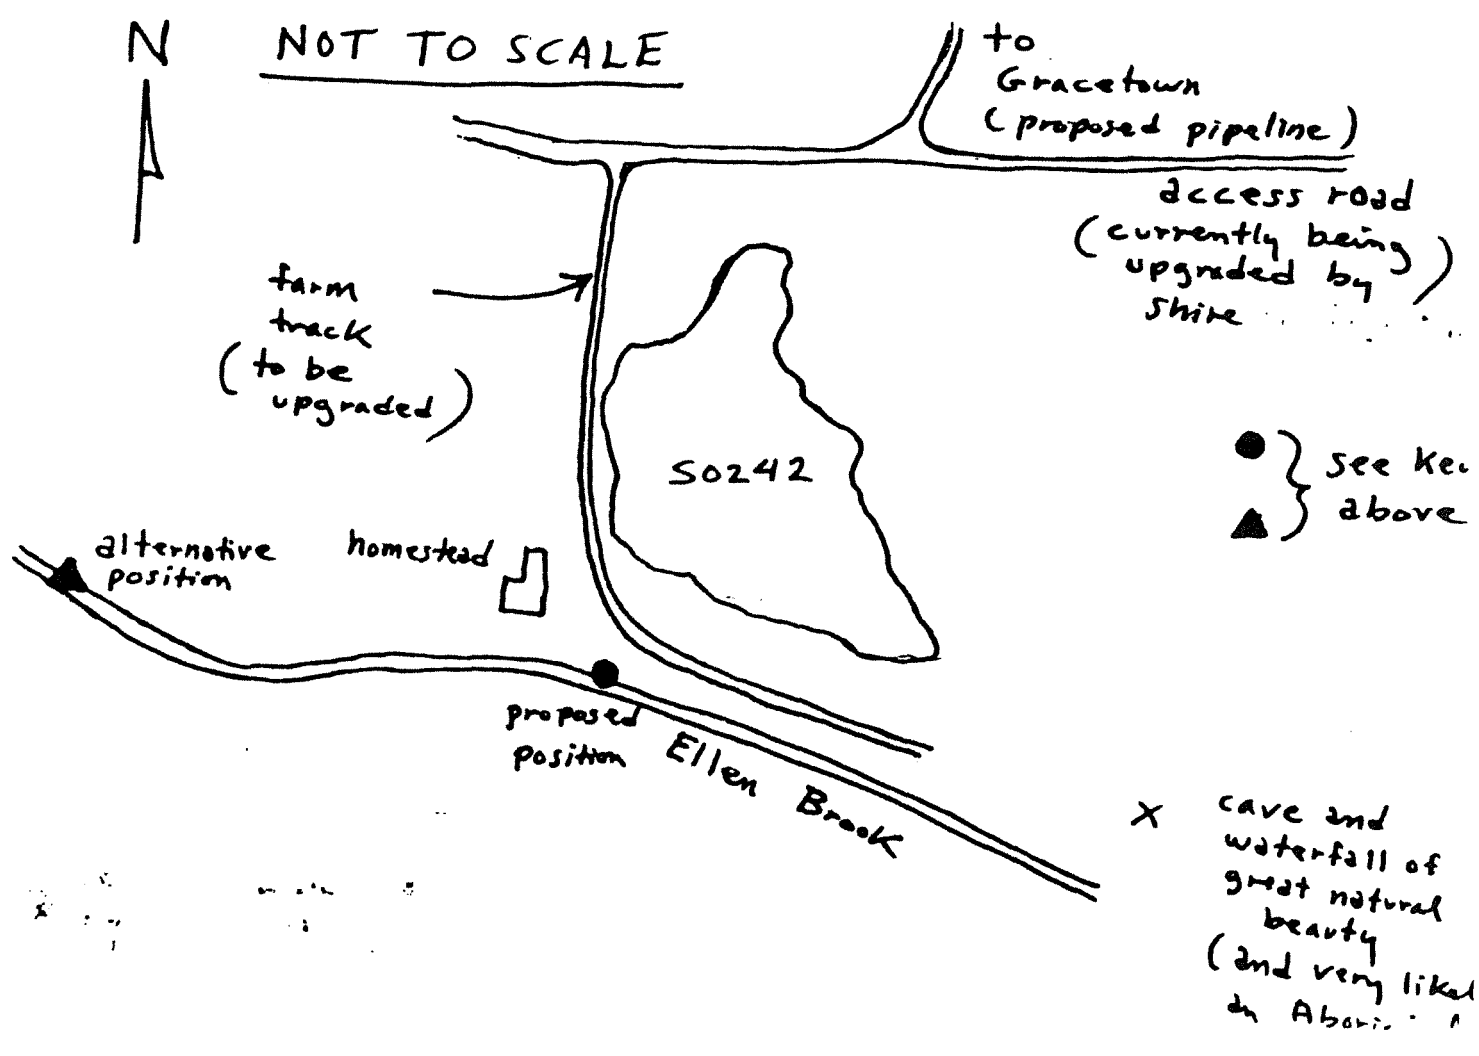 N
NOT TO SCALE
to
Gracetown
(proposed pipeline)
access road
(currently being
upgraded by
shire
farm
track
(to be
upgraded)
S0242
see
above
alternative
position
homestead
proposed
position
Ellen Brook
X
cave and
waterfall of
great natural
beauty
(and very
an